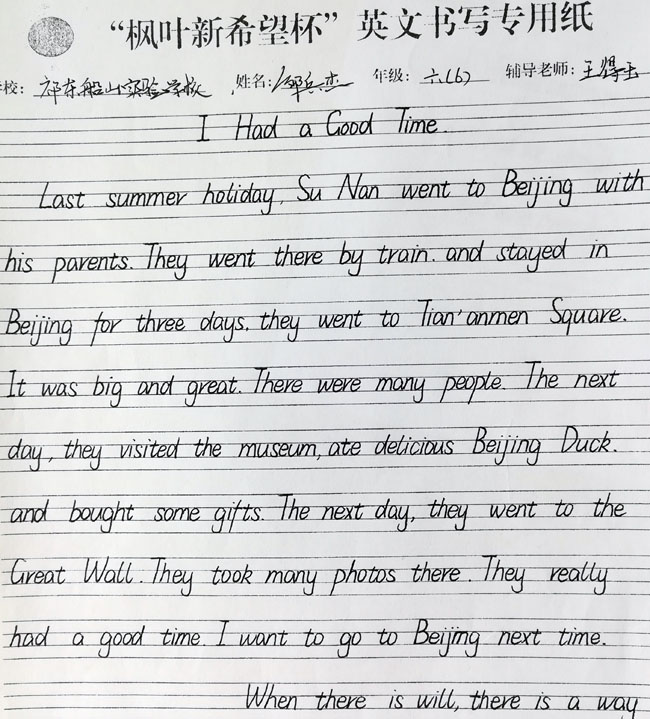 “枫叶新希望杯”英文书写专用纸
校: 祁东船山实验学校 姓名: 邹兵杰 年级: 六(6) 辅导老师: 王得玉
I Had a Good Time.
Last summer holiday, Su Nan went to Beijing with
his parents. They went there by train. and stayed in
Beijing for three days. they went to Tian'anmen Square.
It was big and great. There were many people. The next
day, they visited the museum, ate delicious Beijing Duck.
and bought some gifts. The next day, they went to the
Great Wall. They took many photos there. They really
had a good time. I want to go to Beijing next time.
When there is will, there is a way